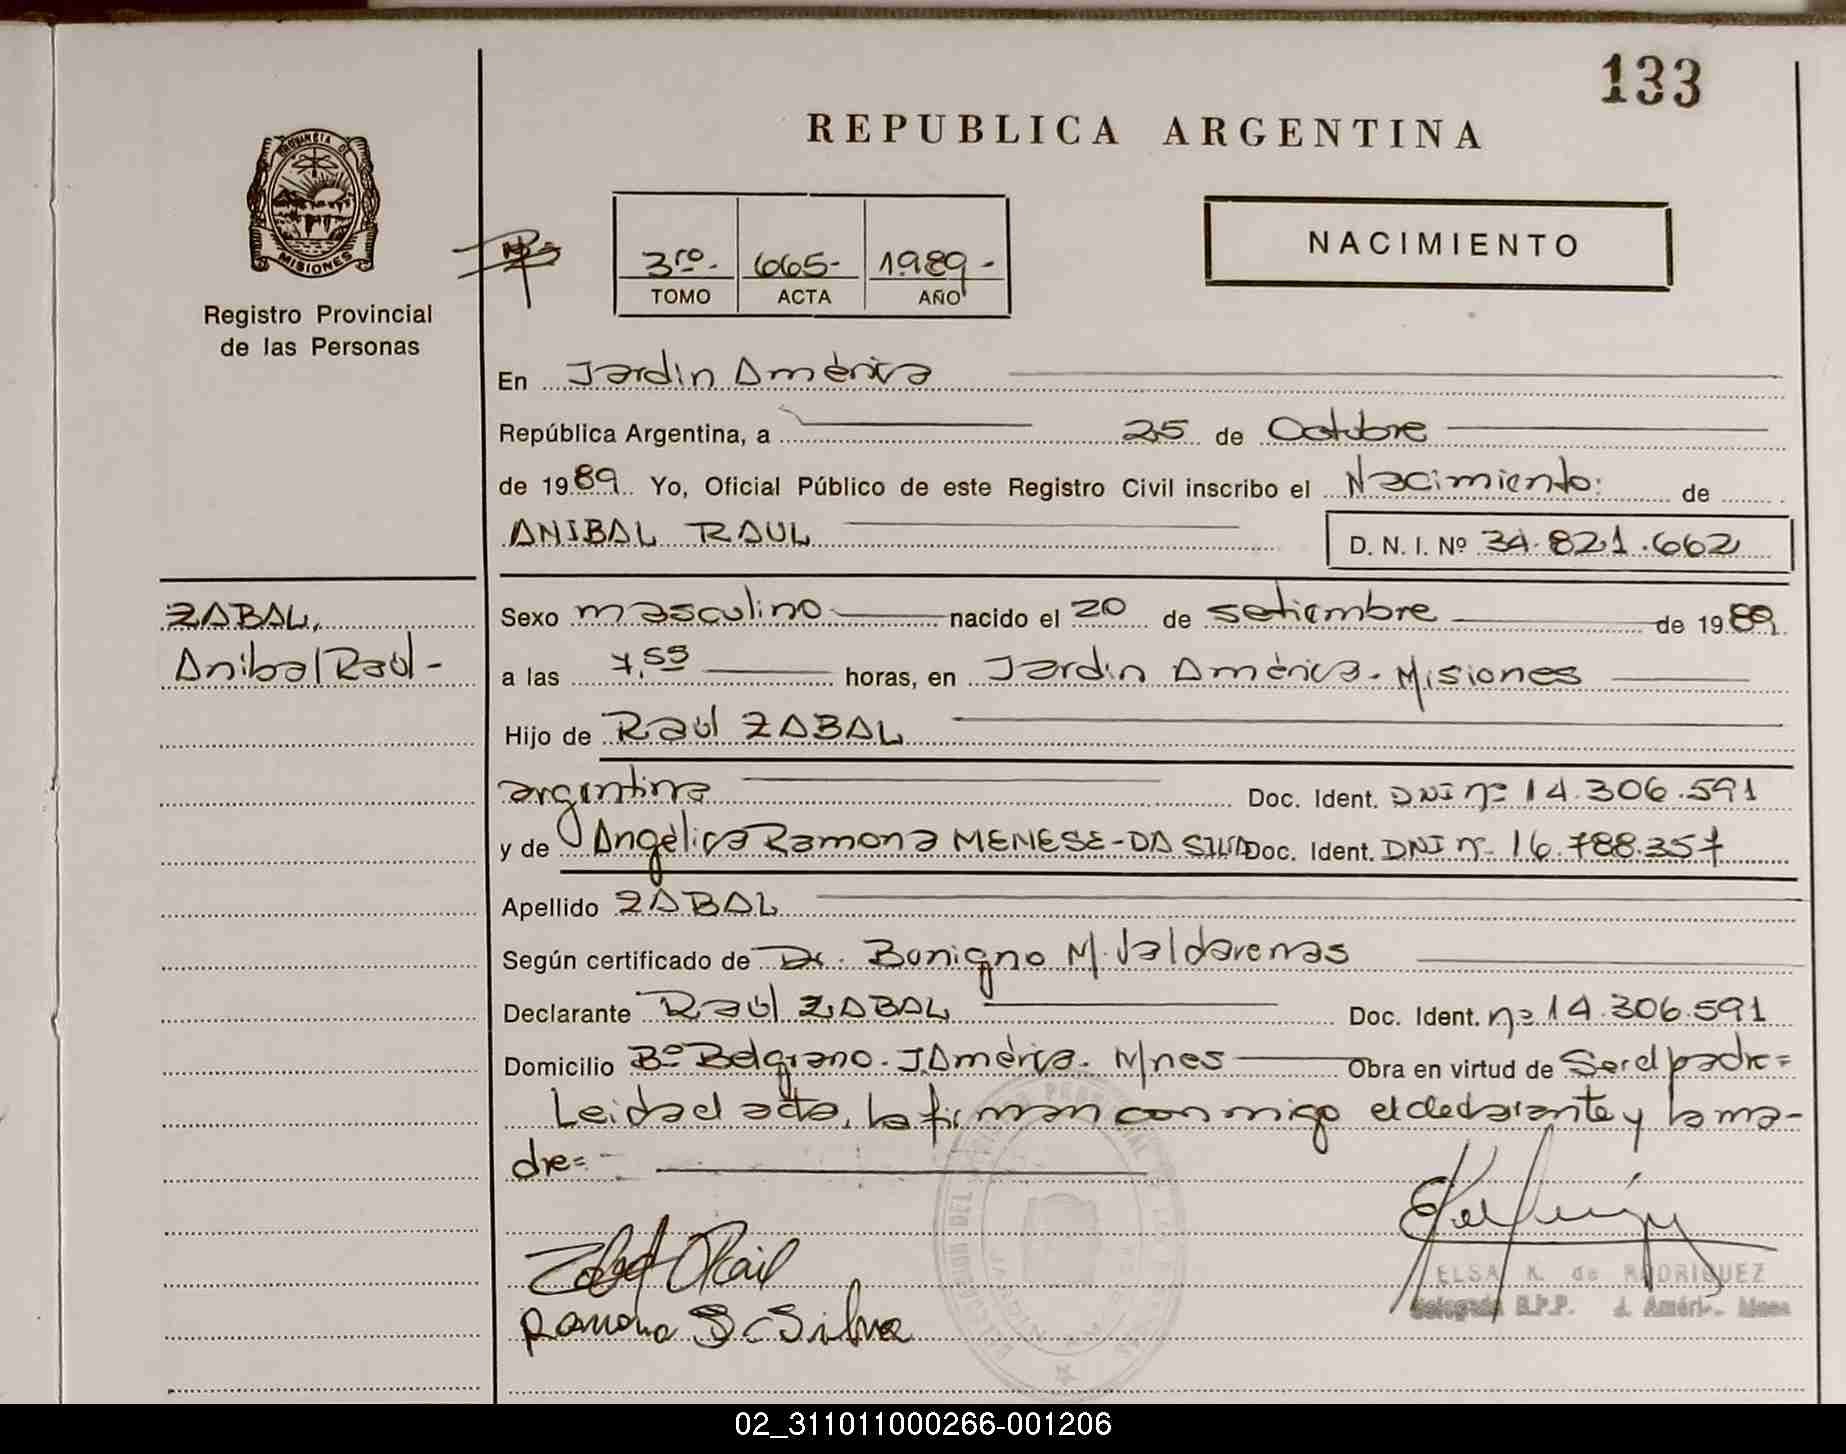 133
REPUBLICA ARGENTINA
PROVINCIA DE
MISIONES
Registro Provincial
de las Personas
3ro.- 665- 1989-
TOMO ACTA AÑO
NACIMIENTO
En Jardín América
República Argentina, a 25 de Octubre
de 1989. Yo, Oficial Público de este Registro Civil inscribo el Nacimiento: de
ANIBAL RAUL D. N. I. Nº 34.821.662
ZABAL,
Anibal Raúl-
Sexo masculino nacido el 20 de setiembre de 1989.
a las 7,55 horas, en Jardín América. Misiones
Hijo de Raúl ZABAL
argentina Doc. Ident. DNI nº 14.306.591
y de Angélica Ramona MENESE-DA SILVA Doc. Ident. DNI nº 16.788.357
Apellido ZABAL
Según certificado de Dr. Benigno M. Valdarenas
Declarante Raúl ZABAL Doc. Ident. nº 14.306.591
Domicilio Bº Belgrano. J. América. Mnes Obra en virtud de Ser el padre=
Leida el acta, la firman conmigo el declarante y la ma-
dre=
Ramona Silva
ELSA K. de RODRIGUEZ
delegada R.P.P. J. Améri. Mnes
02_311011000266-001206